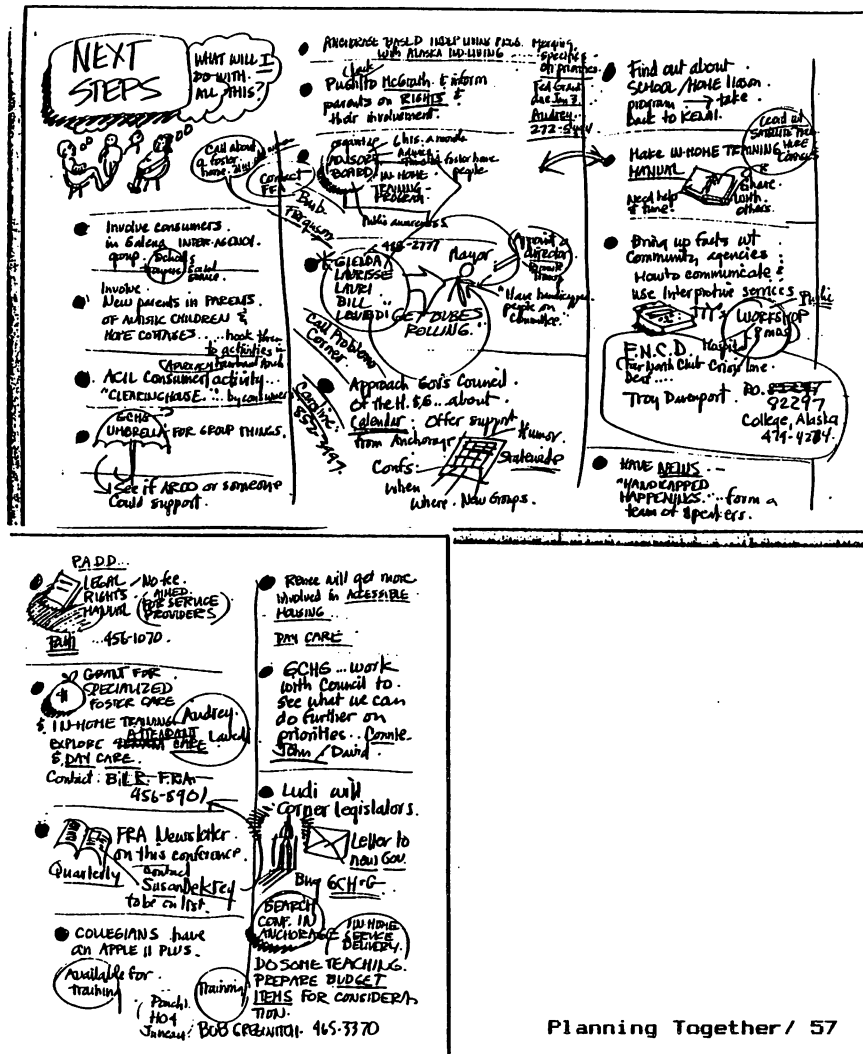 NEXT
STEPS
WHAT WILL I
DO WITH
ALL THIS?
Call about
a foster
home.
Contact
FFA
Bob
Ferguson
Involve consumers
in Galena INTER-AGENCY
group.
Schools
Social
Service
Involve
New parents in PARENTS
OF AUTISTIC CHILDREN &
HOPE COTTAGES ....hook them
to activities
ADVOCACY
ACIL Consumer activity...
"CLEARINGHOUSE"... by consumers
GCHG
UMBRELLA FOR GROUP THINGS.
See if ARDD or someone
Could support.
ANCHORAGE BASED INDEP LIVING PROG. Merging
WITH ALASKA IND. LIVING ......
Specific
on priorities.
Fed Grant
due Jan 7.
Audrey
272-
Push to McGrath & inform
parents on RIGHTS &
their involvement.
organize
ADVISORY
BOARD
foster home
people
IN HOME
TRAINING
PROGRAM
Public awareness
488-2777
GLENDA
LAURISSE
LAURI
BILL
Mayor
Appoint a
director
"Have handicapped
people on
Committee."
GET DUBES
ROLLING..
Call Problems
Corner.
Caroline:
852-3499
Approach Gov's Council
of the H. & G... about
Calendar. Offer support
from Anchorage
Humor
Statewide
Confs:
When
Where. New Groups.
Find out about
SCHOOL/HOME liaison
program → take
back to KENAI.
Make IN-HOME TRAINING
MANUAL
Need help
& time!
Share
with
others.
Bring up facts w/
Community agencies
How to communicate &
use Interpretive services
Public
WORKSHOP
Hospital
F.N.C.D.
Far North Club Crisis line
Deaf....
Troy Davenport. Bo.
82297
College, Alaska
479-4284
HAVE NEWS...
"HANDICAPPED
HAPPENINGS"... form a
team of speakers.
P.A.D.D...
LEGAL
RIGHTS
MANUAL
No fee.
AIMED
FOR SERVICE
PROVIDERS
...456-1070.
$
GRANT FOR
SPECIALIZED
FOSTER CARE
& IN-HOME TRAINING
Audrey
EXPLORE ATTENDANT CARE
& DAY CARE.
Contact: Bill R. FRA
456-8901
FRA Newsletter
on this conference.
Quarterly
Contact
Susan DeKrey
to be on list.
COLLEGIANS have
an APPLE II PLUS.
Available for
training
Training
Pouch
H04
Juneau
BOB GREBNITCH. 465-3370
Renee will get more
involved in ACCESSIBLE
HOUSING
DAY CARE
GCHG ...work
with Council to
see what we can
do further on
priorities.. Connie
John / David.
Ludi will
corner legislators.
Letter to
new Gov.
Bug GCHG
SEARCH
CONF. IN
ANCHORAGE
IN HOME
SERVICE
DELIVERY.
DO SOME TEACHING.
PREPARE BUDGET
ITEMS FOR CONSIDERA
TION.
Planning Together/ 57